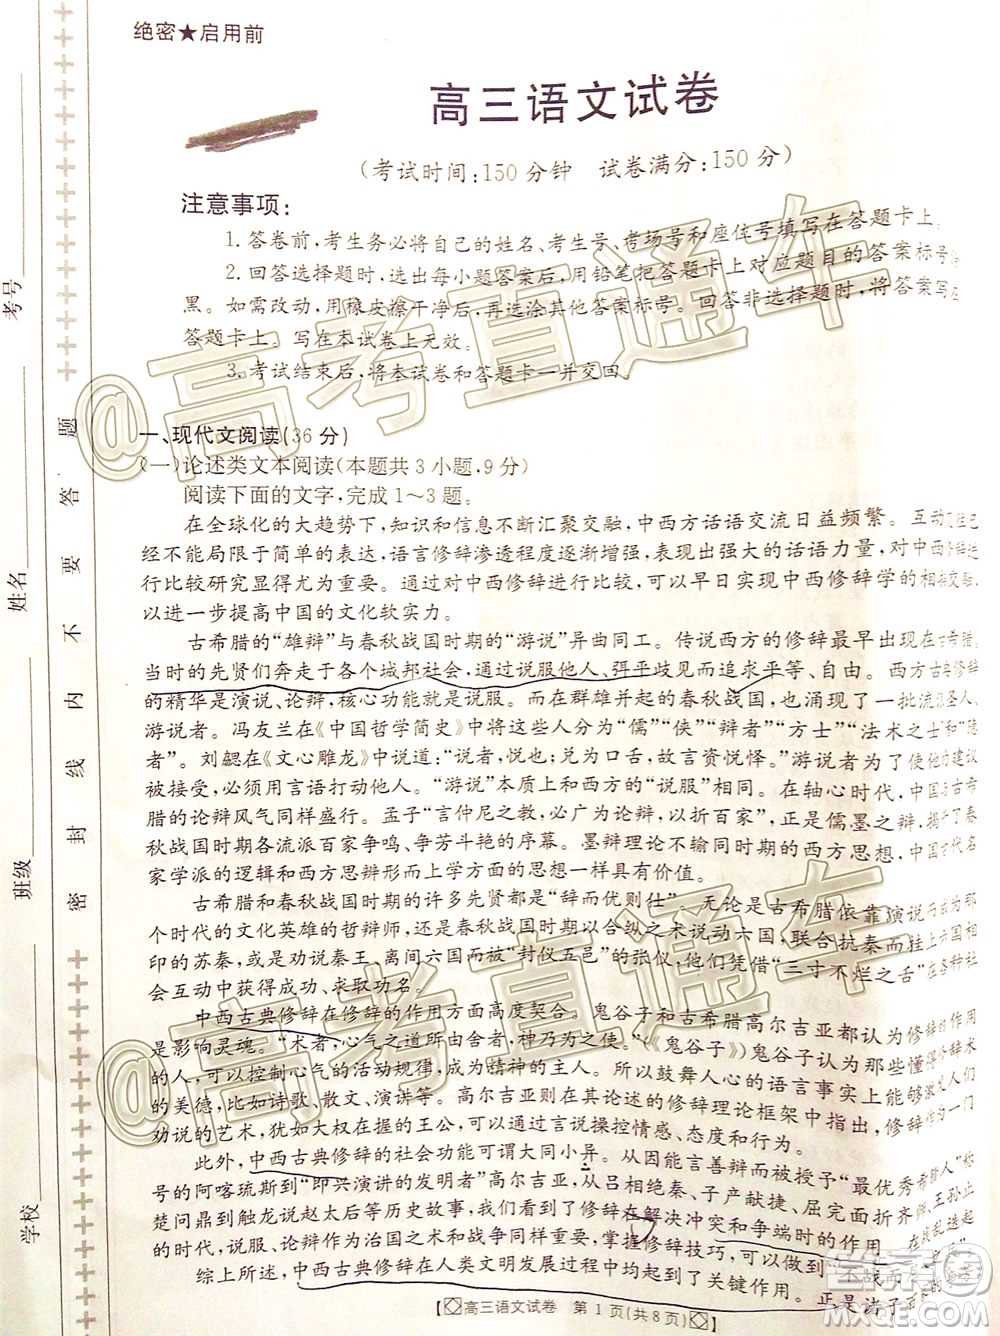 绝密★启用前
高三语文试卷
(考试时间:150分钟 试卷满分:150分)
注意事项:
1. 答卷前,考生务必将自己的姓名、考生号、考场号和座位号填写在答题卡上。
2. 回答选择题时,选出每小题答案后,用铅笔把答题卡上对应题目的答案标号
黑。如需改动,用橡皮擦干净后,再选涂其他答案标号。回答非选择题时,将答案写在
答题卡上。写在本试卷上无效。
3. 考试结束后,将本试卷和答题卡一并交回。
一、现代文阅读(36分)
(一)论述类文本阅读(本题共3小题,9分)
阅读下面的文字,完成1~3题。
在全球化的大趋势下,知识和信息不断汇聚交融,中西方话语交流日益频繁。互动
经不能局限于简单的表达,语言修辞渗透程度逐渐增强,表现出强大的话语力量,对中西修辞进
行比较研究显得尤为重要。通过对中西修辞进行比较,可以早日实现中西修辞学的相融,
以进一步提高中国的文化软实力。
古希腊的“雄辩”与春秋战国时期的“游说”异曲同工。传说西方的修辞最早出现在古希腊,
当时的先贤们奔走于各个城邦社会,通过说服他人、弭平歧见而追求平等、自由。西方古典修辞
的精华是演说、论辩,核心功能就是说服。而在群雄并起的春秋战国,也涌现了一批流浪圣人、
游说者。冯友兰在《中国哲学简史》中将这些人分为“儒”“侠”“辩者”“方士”“法术之士”和“隐
者”。刘勰在《文心雕龙》中说道:“说者,悦也;兑为口舌,故言资悦怿。”游说者为了使他人建议
被接受,必须用言语打动他人。“游说”本质上和西方的“说服”相同。在轴心时代,中国
的论辩风气同样盛行。孟子“言仲尼之教,必广为论辩,以折百家”,正是儒墨之辩,揭开了春
秋战国时期各派百家争鸣、争芳斗艳的序幕。墨辩理论不输同时期的西方思想,中国古代名
家学派的逻辑和西方思辨形而上学方面的思想一样具有价值。
古希腊和春秋战国时期的许多先贤都是“辞而优则仕”。无论是古希腊依靠演说而成为那
个时代的文化英雄的哲辩师,还是春秋战国时期的以合纵之术说动六国,联合抗秦而挂上六国相
印的苏秦,成功说动秦王、离间六国而被“封仪五邑”的张仪,他们凭借“三寸不烂之舌”在各种社
会互动中获得成功、求取功名。
中西古典修辞在修辞的作用方面高度契合。鬼谷子和古希腊高尔吉亚都认为修辞的作用
是影响灵魂。“术者,心气之道所由舍者,神乃为之使。”(《鬼谷子》)鬼谷子认为那些懂得修辞术
的人,可以控制心气的活动规律,成为人的主宰。所以鼓舞人心的语言事实上可以激发人们
的美德,比如诗歌、散文、演讲等。高尔吉亚则在其论述的修辞理论框架中指出,修辞作为一门
劝说的艺术,犹如大权在握的王公,可以通过言说操控情感、态度和行为。
此外,中西古典修辞的社会功能大同小异。从以“能言善辩”而被授予“最优秀希腊人”称
号的阿喀琉斯到“即兴演讲的发明者”高尔吉亚,从吕相绝秦、子产献捷、屈完折齐侯、王孙
楚问鼎到触龙说赵太后等历史故事,我们发现了修辞在解决冲突和争端时的重要作用。在战乱迭起
时代,游说、论辩作为治国之术和外交之术,掌握修辞技巧,可以做到“不战而
综上所述,中西古典修辞在人类文明发展过程中均起到了关键作用。正是诸子百家
【高三语文试卷 第1页(共8页)】
考号
姓名
班级
学校
密封线内不要答题
@高考直通车
@高考直通车
答案圈